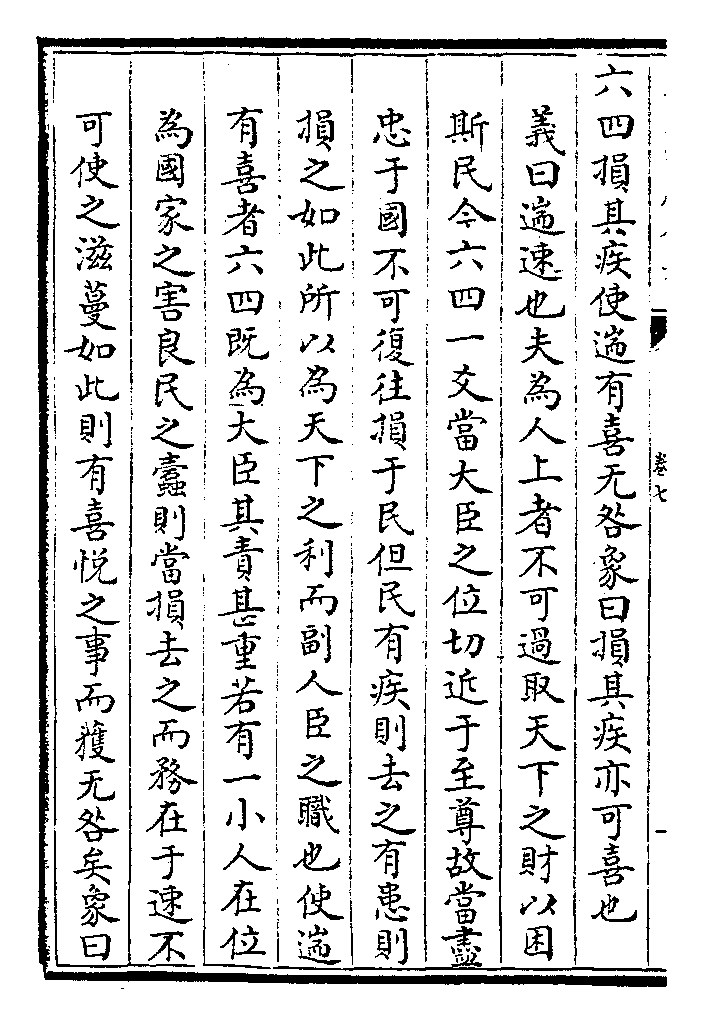 六四損其疾使遄有喜无咎象曰損其疾亦可喜也
義曰遄速也夫為人上者不可過取天下之財以困
斯民今六四一爻當大臣之位切近于至尊故當盡
忠于國不可復往損于民但民有疾則去之有患則
損之如此所以為天下之利而副人臣之職也使遄
有喜者六四既為大臣其責甚重若有一小人在位
為國家之害良民之蠹則當損去之而務在于速不
可使之滋蔓如此則有喜悅之事而獲无咎矣象曰
卷七